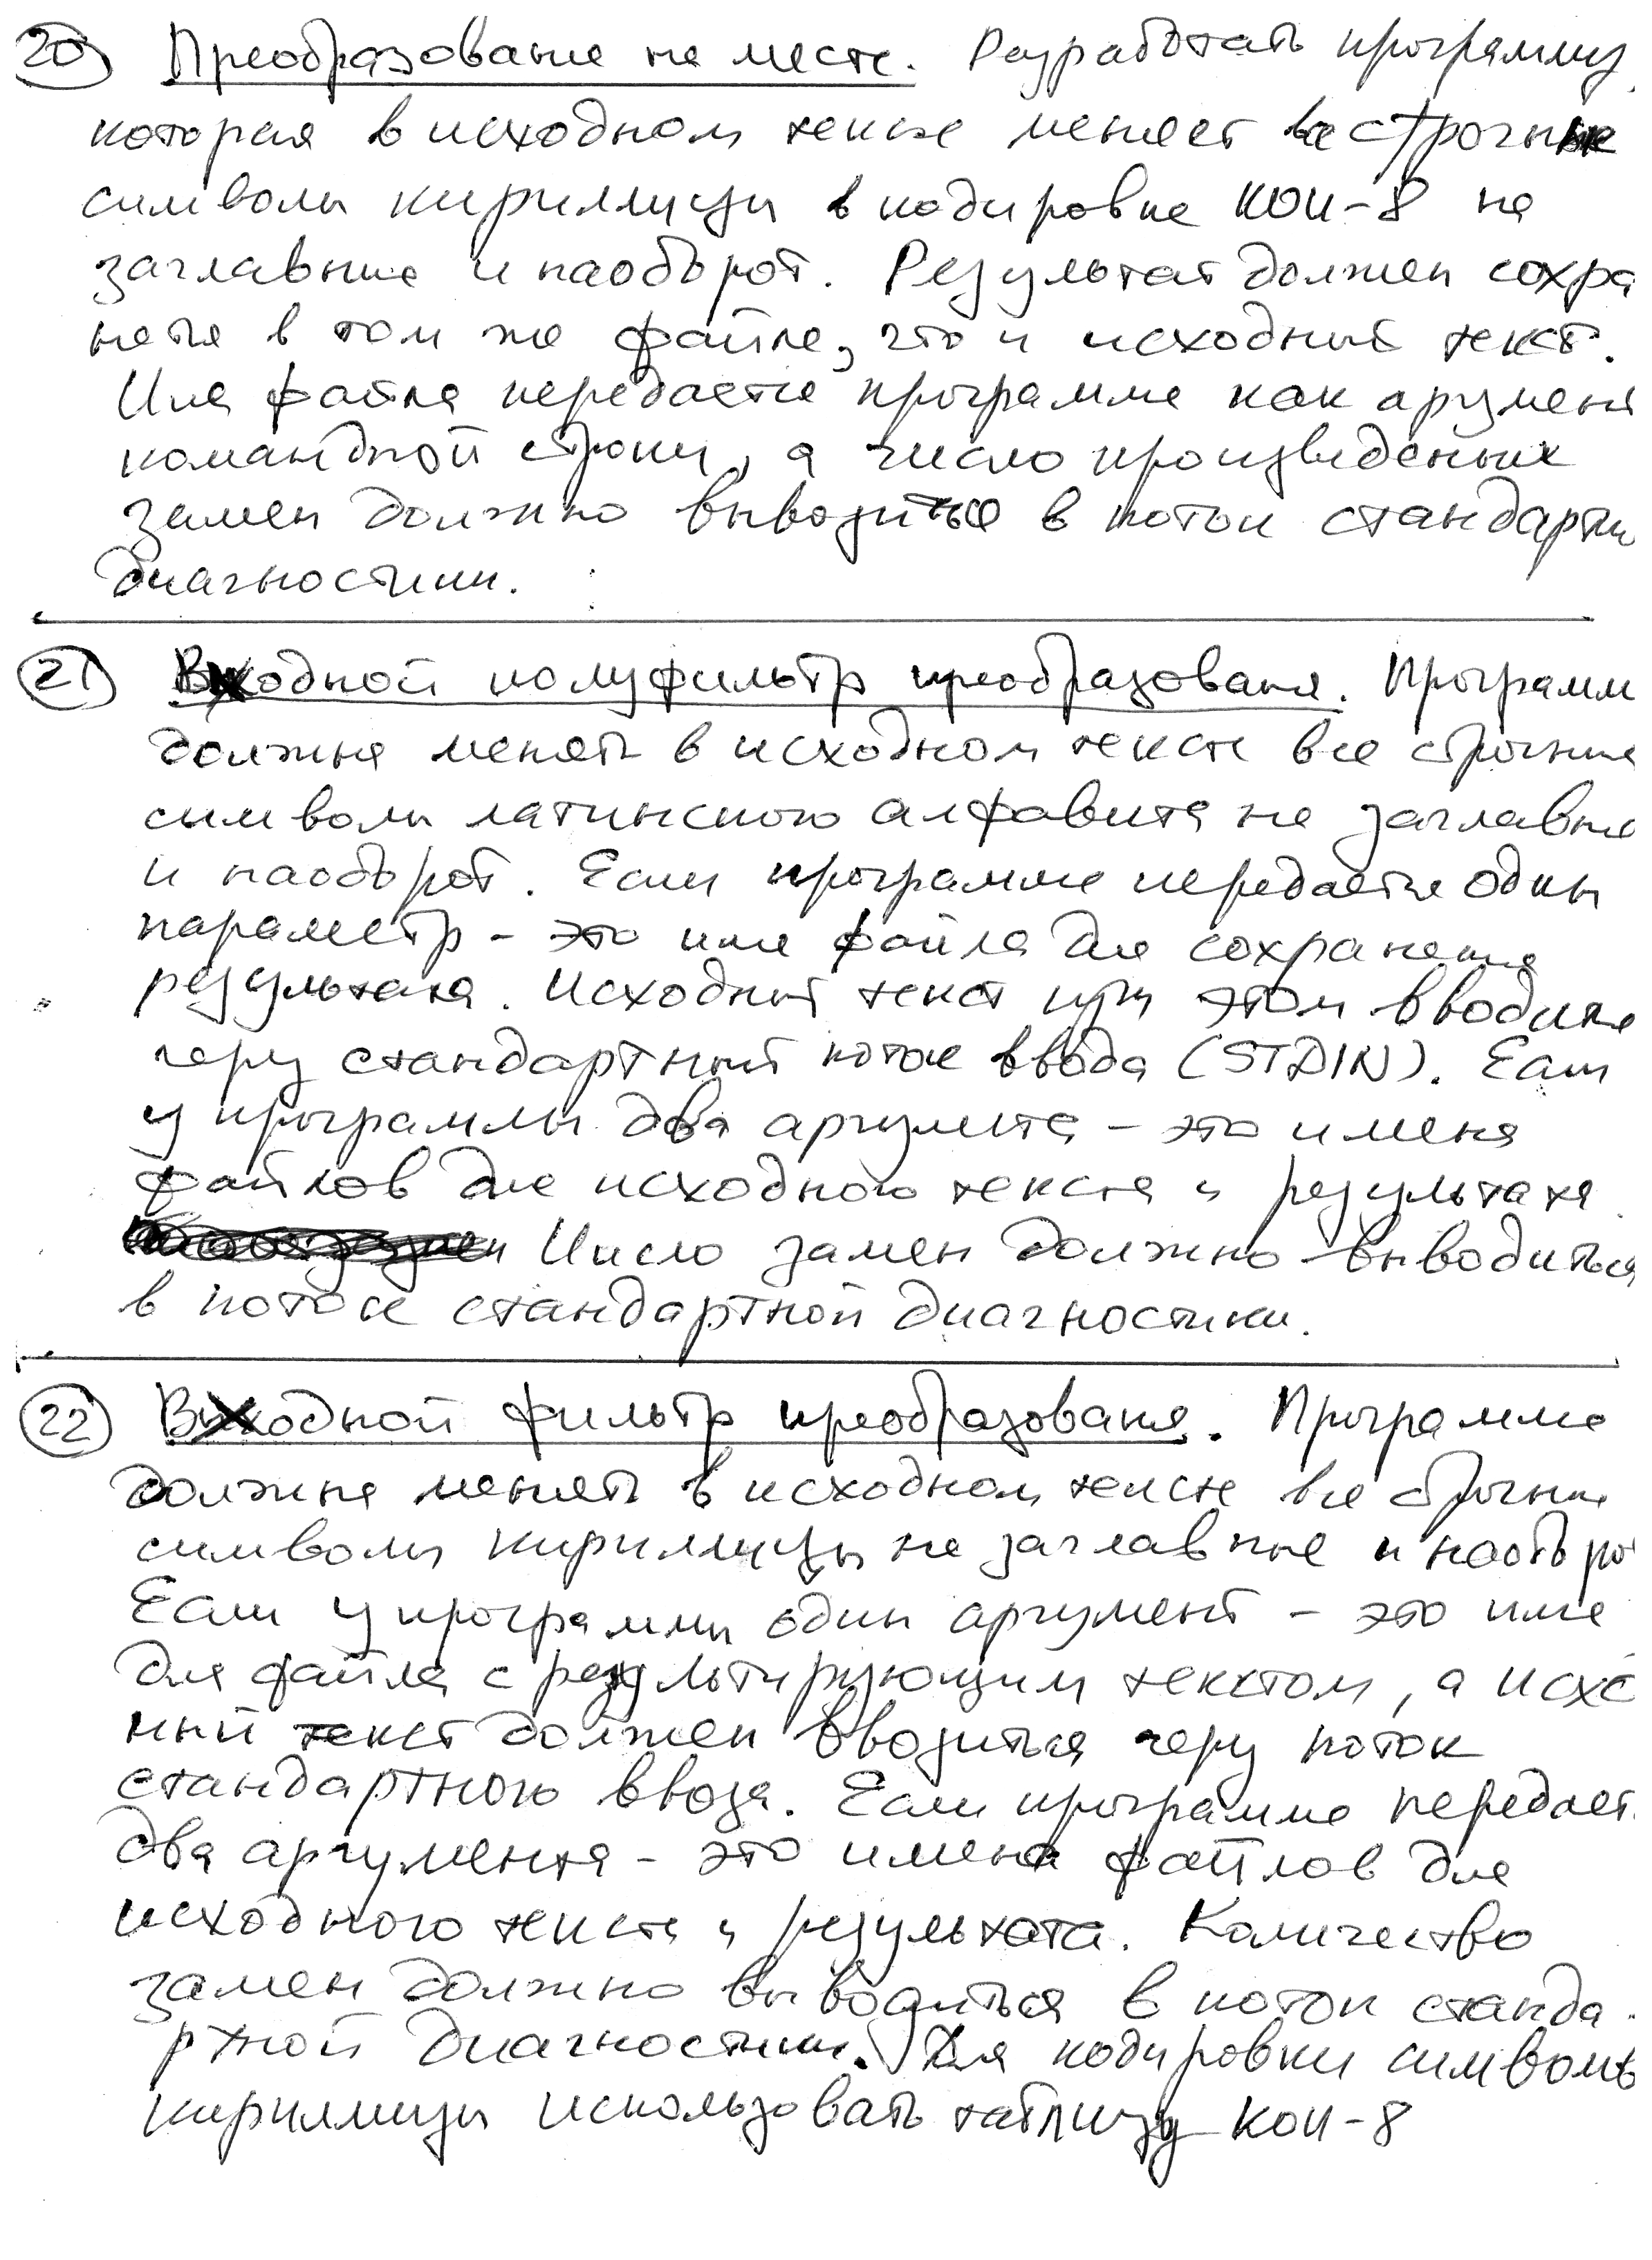 20 Преобразование на месте. Разработать программу,
которая в исходном тексте меняет все строчные
символы кириллицы в кодировке КОИ-8 на
заглавные и наоборот. Результат должен сохра
нятся в том же файле, что и исходный текст.
Имя файла передается программе как аргумент
командной строки, а число произведенных
замен должно выводиться в поток стандартно
диагностики.
21 Входной полуфильтр преобразования. Программ
должна менять в исходном тексте все строчные
символы латинского алфавита на заглавные
и наоборот. Если программе передается один
параметр - это имя файла для сохранения
результата. Исходный текст при этом вводится
через стандартный поток ввода (STDIN). Если
у программы два аргумента - это имена
файлов для исходного текста и результата.
Число замен должно выводиться
в потоке стандартной диагностики.
22 Входной фильтр преобразования. Программа
должна менять в исходном тексте все строчные
символы кириллицы на заглавные и наоборот
Если у программы один аргумент - это имя
для файла с результирующим текстом, а исхо
ный текст должен вводиться через поток
стандартного ввода. Если программе передает
два аргумента - это имена файлов для
исходного текста и результата. Количество
замен должно выводиться в поток станда-
ртной диагностики. Для кодировки символов
кириллицы использовать таблицу КОИ-8